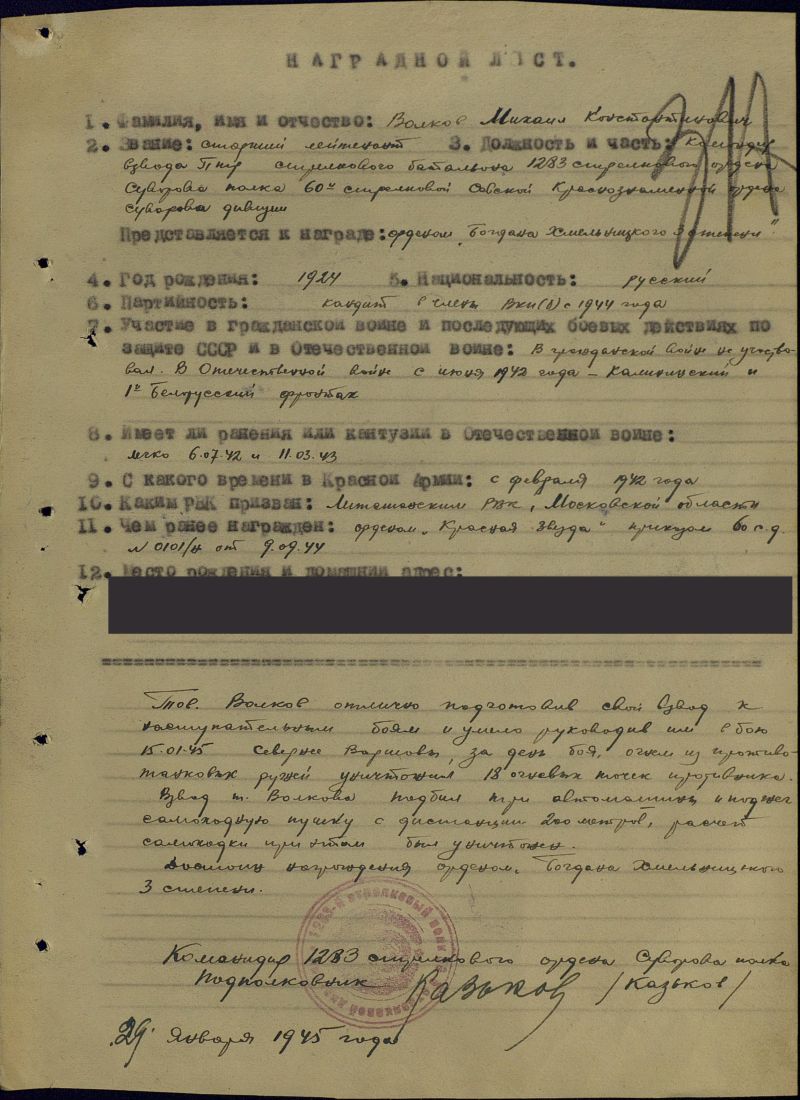 НАГРАДНОЙ ЛИСТ.
1. Фамилия, имя и отчество: Волков Михаил Константинович
2. Звание: старший лейтенант 3. Должность и часть: Командир
взвода птр стрелкового батальона 1283 стрелкового ордена
Суворова полка 60й стрелковой Севской Краснознаменной ордена
Суворова дивизии
Представляется к награде: орденом "Богдана Хмельницкого 3 степени"
4. Год рождения: 1924 5. Национальность: русский
6. Партийность: кандит в члены ВКП(б) с 1944 года
7. Участие в гражданской войне и последующих боевых действиях по
защите СССР и в Отечественной войне: В гражданской войне не участво-
вал. В Отечественной войне с июня 1942 года - Калининский и
1й Белорусский фронтах
8. Имеет ли ранения или кантузии в Отечественной войне:
легко 6.07.42 и 11.03.43
9. С какого времени в Красной Армии: с февраля 1942 года
10. Каким РВК призван: РВК, Московской области
11. Чем ранее награжден: орденом "Красная Звезда" приказом 60 с.д.
N 0101/н от 9.09.44
12. Место рождения и домашний адрес:
Тов. Волков отлично подготовив свой взвод к
наступательным боям и умело руководив им в бою
15.01.45 севернее Варшавы, за день боя, огнем из противо-
танковых ружей уничтожил 18 огневых точек противника.
Взвод т. Волкова подбил три автомашины и поджег
самоходную пушку с дистанции 200 метров, расчет
самоходки при этом был уничтожен.
Достоин награждения орденом "Богдана Хмельницкого
3 степени.
1283-й стрелковый полк
Командир 1283 стрелкового ордена Суворова полка
Подполковник Казьков /Казьков/
29 января 1945 года